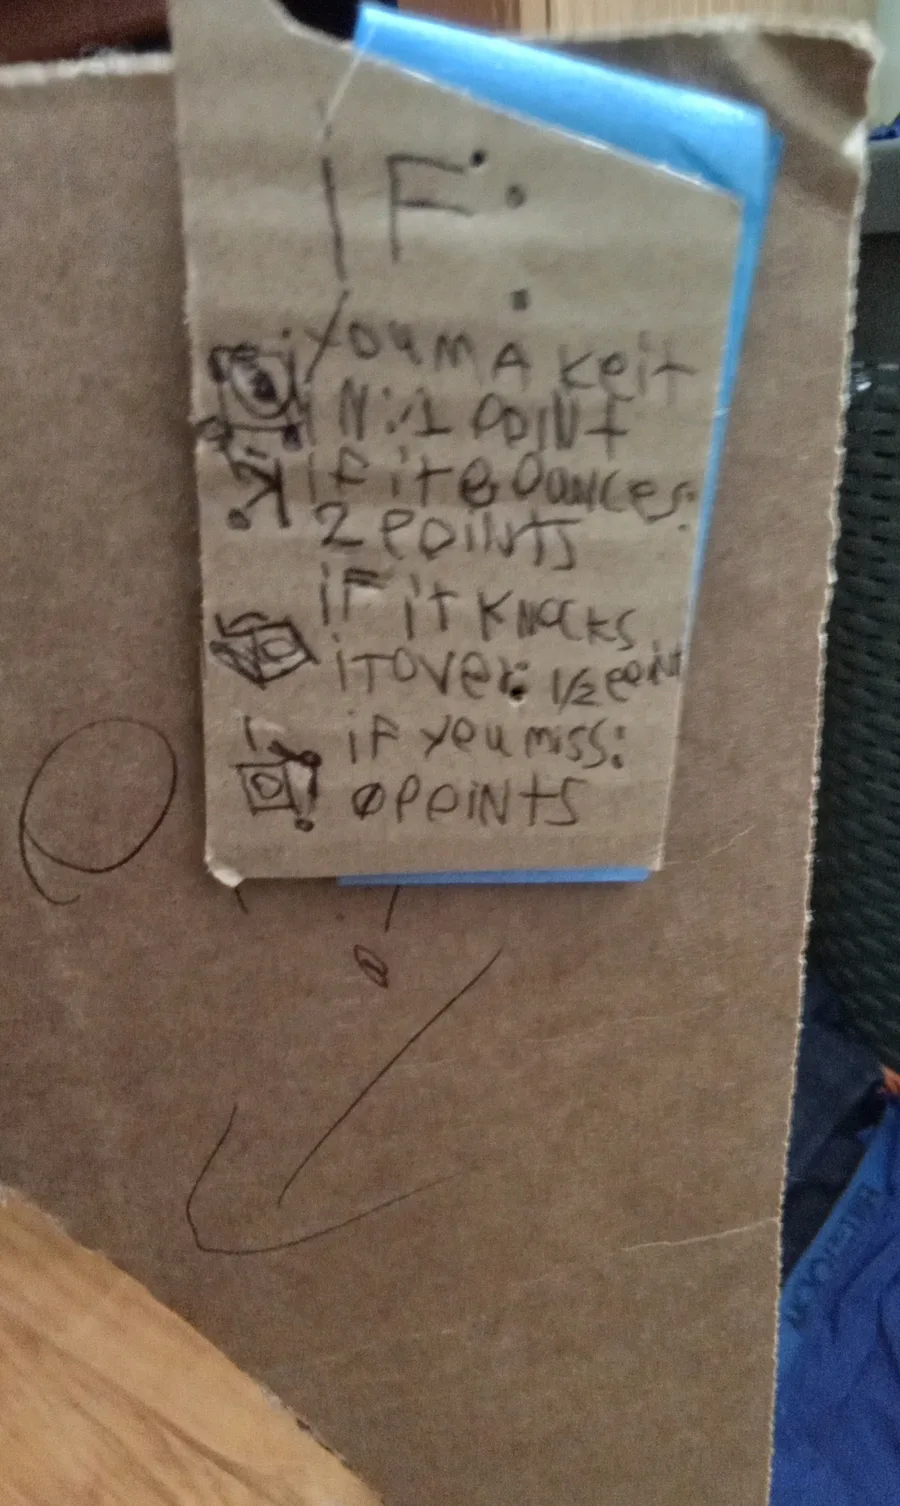 IF:
YOU MAKe it
IN: 1 POINT
iF it BOUNCeS:
2 POINTS
iF iT KNOCKS
iT OVer: 1/2 POiNt
iF YOU miSS:
0 POiNtS